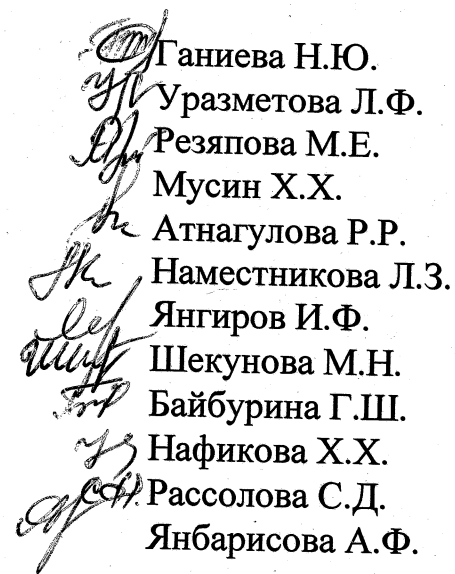 Ганиева Н.Ю.
Уразметова Л.Ф.
Резяпова М.Е.
Мусин Х.Х.
Атнагулова Р.Р.
Наместникова Л.З.
Янгиров И.Ф.
Шекунова М.Н.
Байбурина Г.Ш.
Нафикова Х.Х.
Рассолова С.Д.
Янбарисова А.Ф.